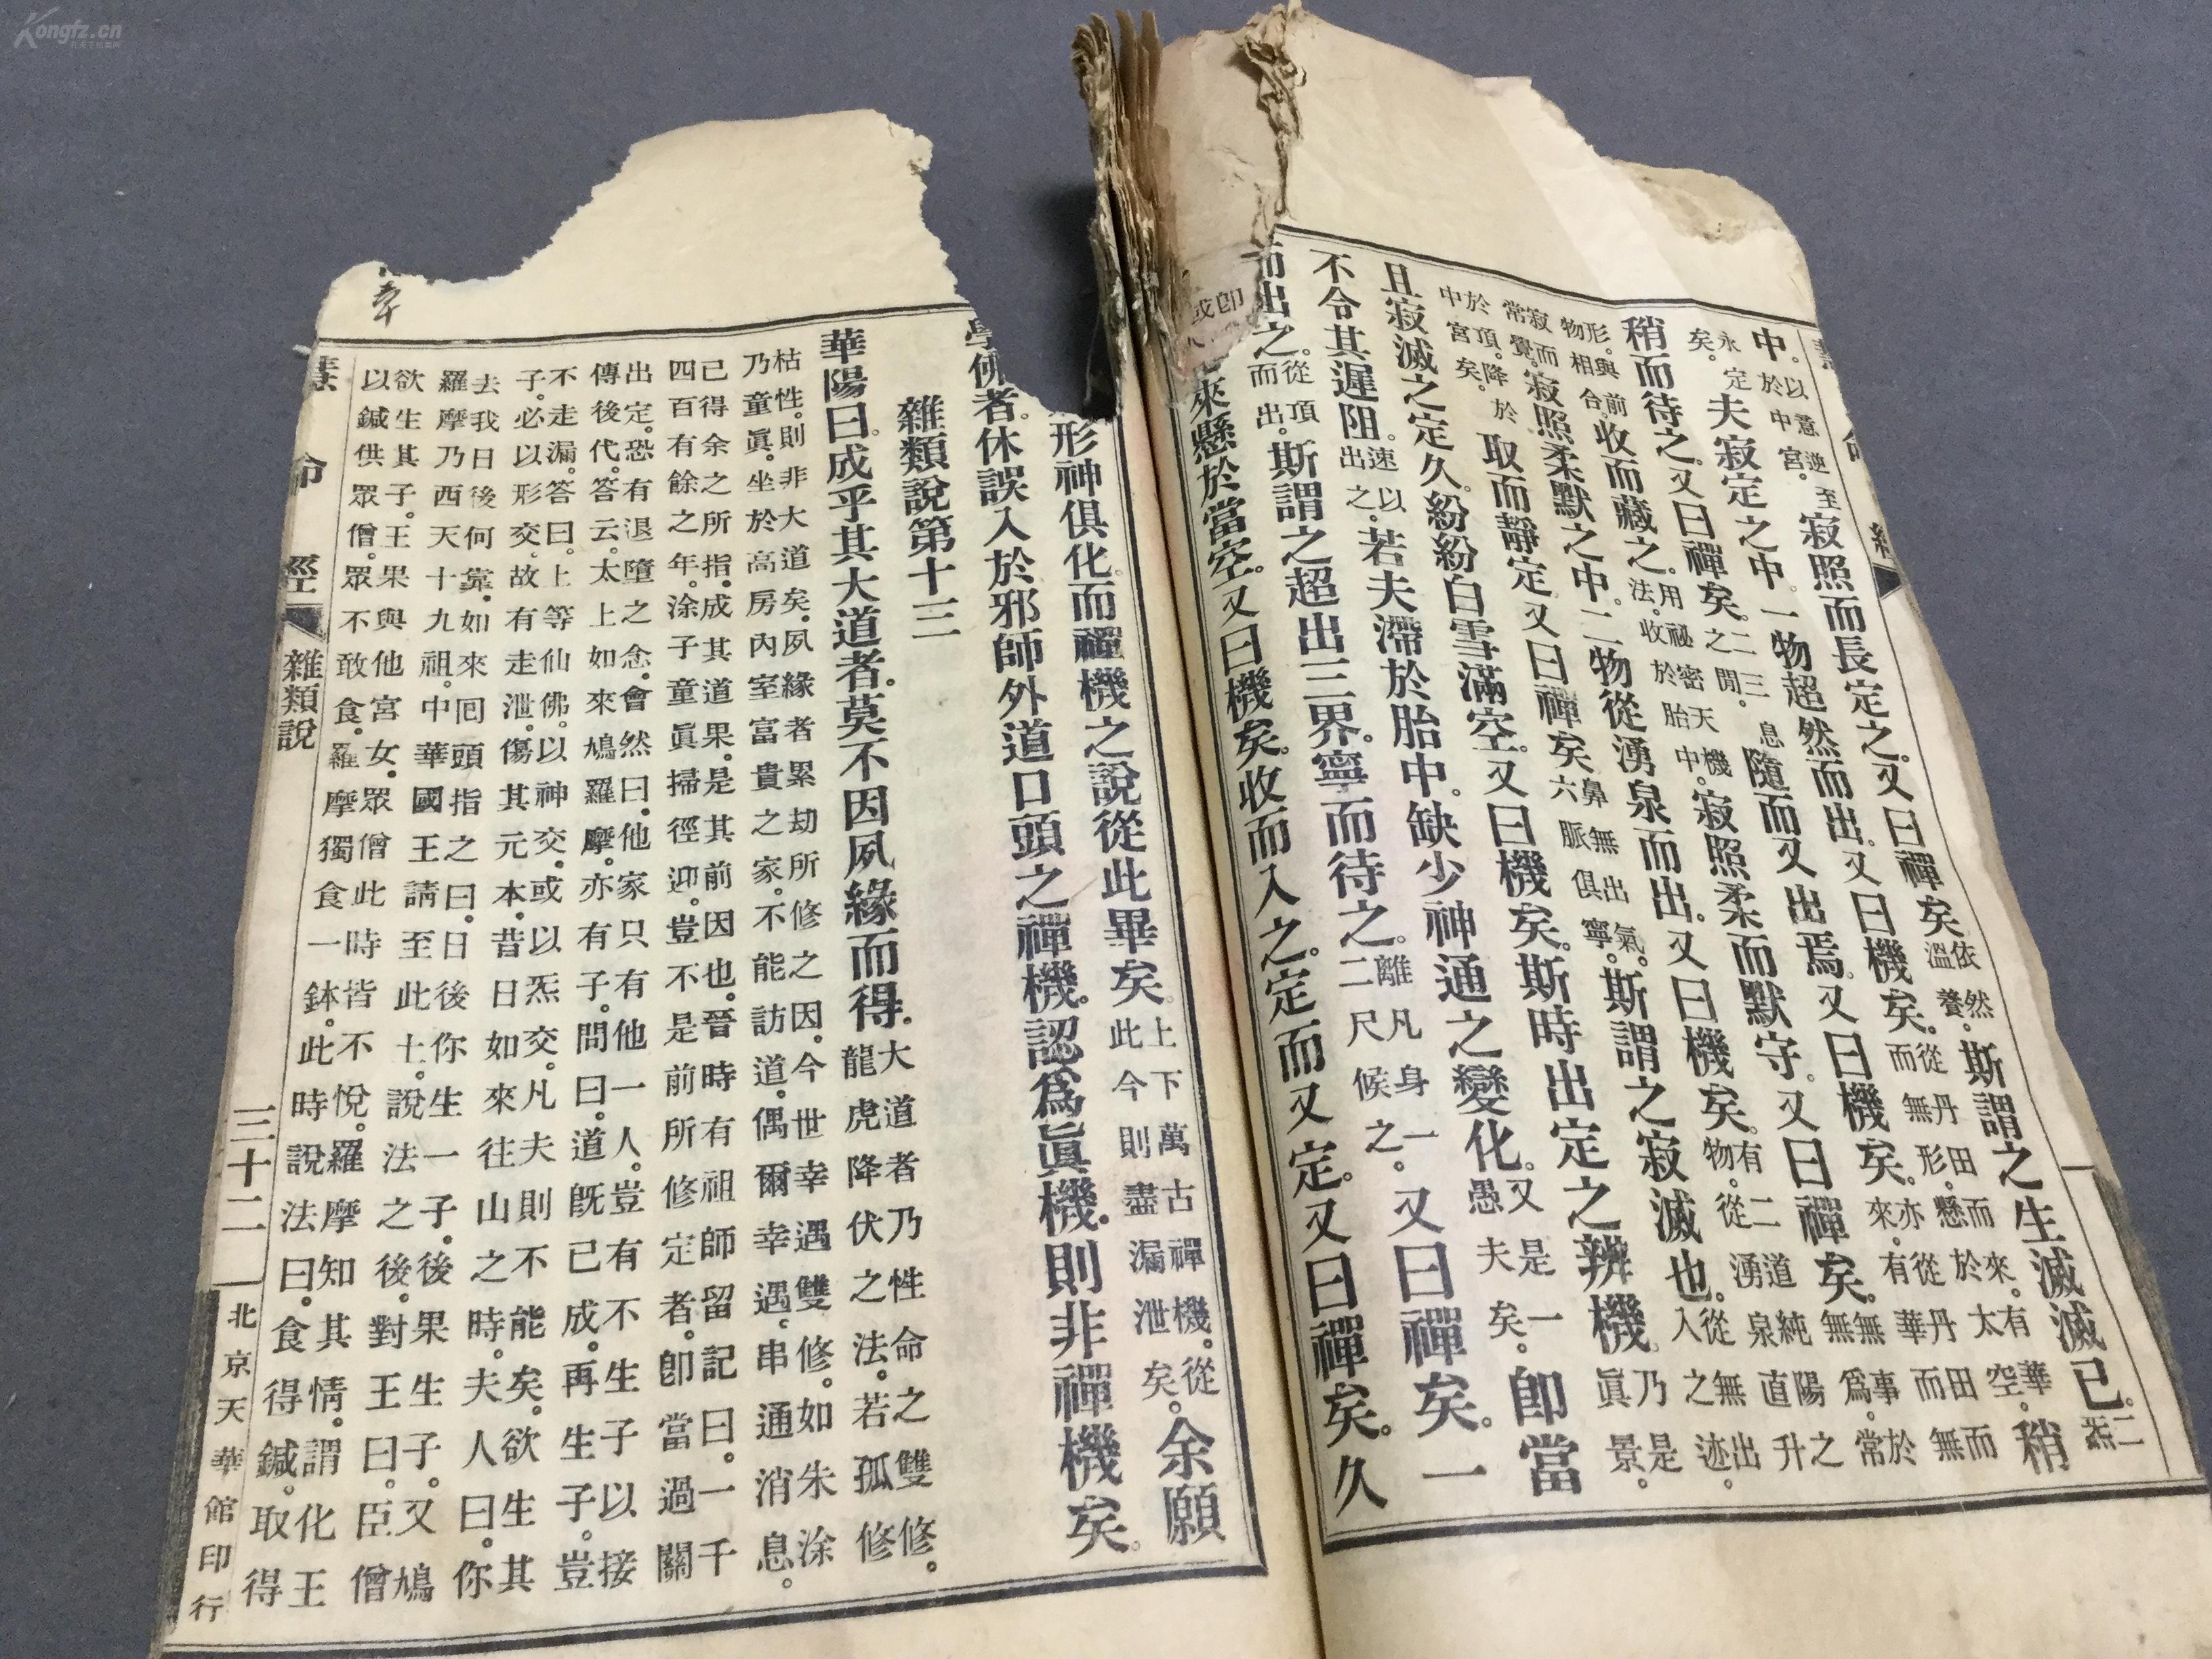 中。以意逆至於中宮。寂照而長定之。又曰禪矣。依然溫養。斯謂之生滅滅已。二炁
永定矣。夫寂定之中。一物超然而出。又曰機矣。從丹田而來。有華而無形。懸於太空。稍
稍而待之。又曰禪矣。二三息之間。隨而又出焉。又曰機矣。
形。與前物相合。收而藏之。用祕密天機法。收於胎中。寂照柔而默守。又曰禪矣。
寂而常覺。寂照柔默之中。二物從湧泉而出。又曰機矣。有二道純陽之物。從湧泉直升
於頂。降於中宮矣。取而靜定。又曰禪矣。鼻無出氣。六脈俱寧。斯謂之寂滅也。從無出入之迹。乃是眞景。
且寂滅之定久。紛紛白雪滿空。又曰機矣。斯時出定之辨機。即當
不令其遲阻。速以出之。若夫滯於胎中。缺少神通之變化。又是一愚夫矣。
而出之。從頂而出。斯謂之超出三界。寧而待之。離凡身一二尺候之。又曰禪矣。一
來懸於當空。又曰機矣。收而入之。定而又定。又曰禪矣。久
形神俱化。而禪機之說從此畢矣。上下萬古禪機。從此今則盡漏泄矣。余願
學佛者。休誤入於邪師外道口頭之禪機。認爲眞機。則非禪機矣。
雜類說第十三
華陽曰。成乎其大道者。莫不因夙緣而得。大道者乃性命之雙修。龍虎降伏之法。若孤修
枯性。則非大道矣。夙緣者累劫所修之因。今世幸遇雙修。如朱涂
乃童眞。坐於高房內室富貴之家。不能訪道。偶爾幸遇。串通消息。
已得余之所指。成其道果。是其前因也。晉時有祖師留記曰。一千
四百有餘之年。涂子童眞掃徑迎。豈不是前所修定者。卽當過關
出定。恐有退墮之念。會然曰。他家只有他一人。豈有不生子以接
傳後代。答云。太上如來鳩羅摩。亦有子。問曰。道旣已成。再生子。豈
不走漏。答曰。上等仙佛。以神交。或以炁交。凡夫則不能矣。欲生其
子。必以形交。故有走泄。傷其元本。昔日如來往山之時。夫人曰。你
去我日後何靠。如來囘頭指之曰。日後你生一子。後果生子。又鳩
羅摩乃西天十九祖。中華國王請至此土。說法之後。對王曰。臣僧
欲生其子。王果與他宮女。眾僧此時皆不悅。羅摩知其情。謂化王
以鍼供眾僧。眾不敢食。羅摩獨食一鉢。此時說法曰。食得鍼。取得
命經
雜類說
三十二
北京天華館印行
Kongfz.cn